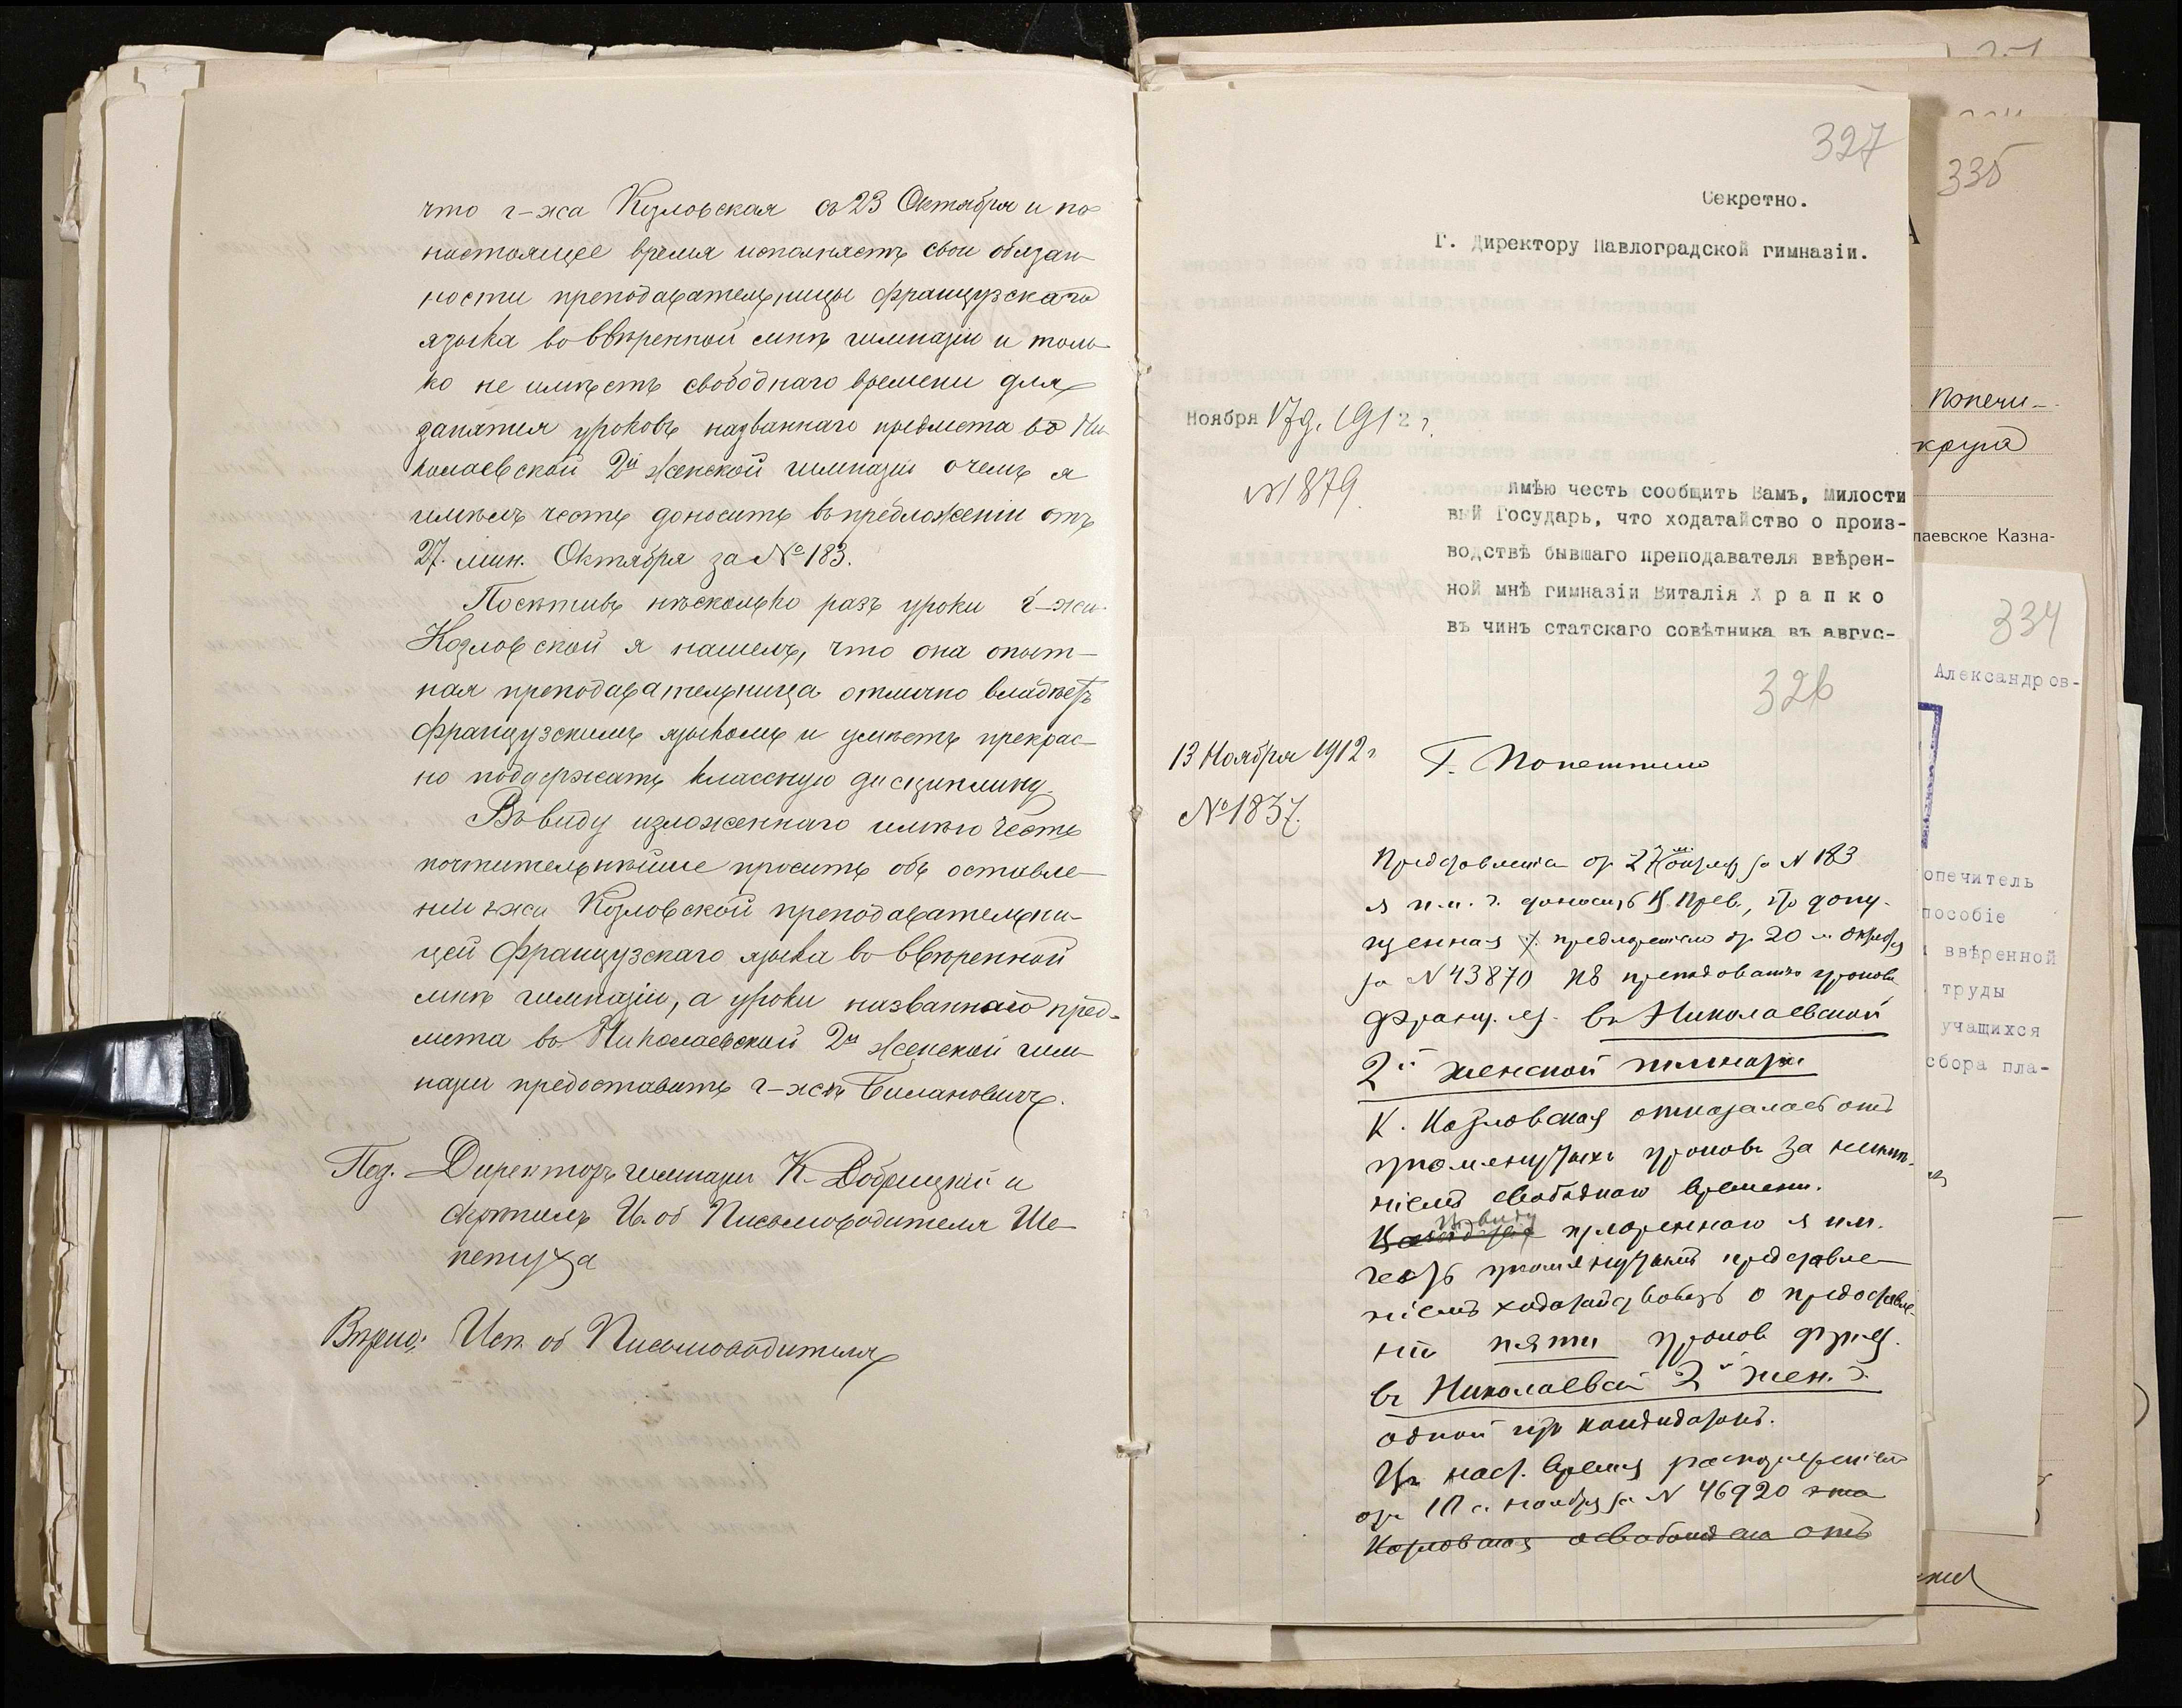 что г-жа Козловская съ 23 Октября и по
настоящее время исполняетъ свои обязан-
ности преподавательницы французскаго
языка во ввѣренной мнѣ гимназіи и толь-
ко не имѣетъ свободнаго времени для
занятія уроковъ названнаго предмета во Ни-
колаевской 2й женской гимназіи о чемъ я
имѣлъ честь доносить въ предложеніи отъ
27. мин. Октября за № 183.
Посѣтивъ нѣсколько разъ уроки г-жи
Козловской я нашелъ, что она опыт-
ная преподавательница отлично владѣетъ
французскимъ языкомъ и умѣетъ прекрас-
но поддержать классную дисциплину.
Въ виду изложеннаго имѣю честь
почтительнѣйше просить объ оставле-
ніи г-жи Козловской преподавательни-
цей французскаго языка во ввѣренной
мнѣ гимназіи, а уроки названнаго пред-
мета во Николаевской 2й женской гим-
назіи предоставить г-жѣ Билановичъ.
Под. Директоръ гимназіи К. Добрицкій и
скрѣпилъ И. об Письмоводителя Ше-
петуха
Вѣрно: Исп. об Письмоводителя
327
Секретно.
Г. Директору Павлоградской гимназіи.
Ноября 17 д. 1912 г.
№ 1879.
Имѣю честь сообщить Вамъ, Милости
вый Государь, что ходатайство о произ-
водствѣ бывшаго преподавателя ввѣрен-
ной мнѣ гимназіи Виталія Х р а п к о
въ чинъ статскаго совѣтника въ авгус-
326
13 Ноября 1912 г.
№ 1837.
Г. Попечителю
от 27 за № 183
я и. ч. доносить В. Прев., что допу-
щенная предложеніемъ от 20 м. октября
за № 43870 къ преподаванію уроковъ
франц. яз. въ Николаевской
2й женской гимназіи
К. Козловская отказалась отъ
упомянутыхъ уроковъ за неимѣ-
ніемъ свободнаго времени.
Въ виду изложеннаго я им.
честь упомянутымъ представле-
ніемъ ходатайствовать о предоставле-
ніи пяти уроков фр. яз.
въ Николаевской 2й жен. г.
одной изъ кандидатокъ.
Въ наст. время распоряженіемъ
отъ 10 с. ноября за № 46920
Козловская освобождена отъ
335
Попечи-
круга
лаевское Казна-
334
Александров-
опечитель
пособіе
ввѣренной
труды
учащихся
сбора пла-